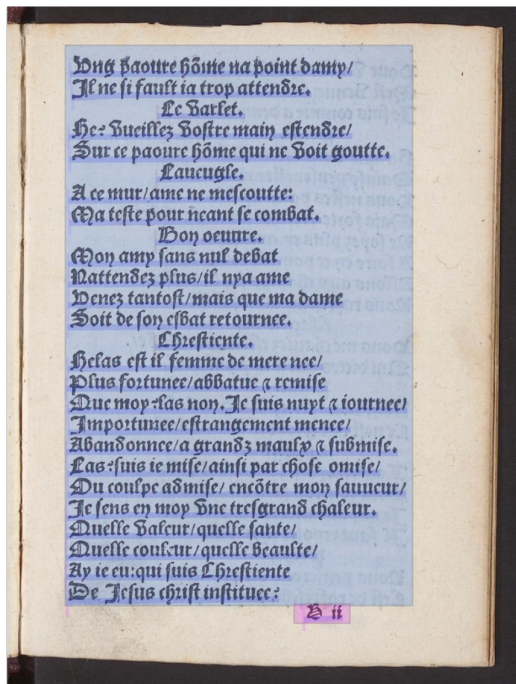 Vng paoure hõme na point damy/
Il ne si fault ia trop attendre.
Le Varlet.
He? vueillez vostre main estendre/
Sur ce paoure hõme qui ne voit goutte.
Laueugle.
A ce mur/ame ne mescoutte:
Ma teste pour neant se combat.
Bon oeuure.
Mon amy sans nul debat
Nattendez plus/il nya ame
Venez tantost/mais que ma dame
Soit de son esbat retournee.
Chrestiente.
Helas est il femme de mere nee/
Plus fortunee/abbatue ⁊ remise
Que moy?las non. Je suis nuyt ⁊ iournee/
Importunee/estrangement menee/
Abandonnee/a grandz maulx ⁊ submise.
Las?suis ie mise/ainsi par chose omise/
Ou coulpe admise/encõtre mon sauueur/
Je sens en moy vne tresgrand chaleur.
Quelle valeur/quelle sante/
Quelle couleur/quelle beaulte/
Ay ie eu:qui suis Chrestiente
De Jesus christ instituee?
B ii